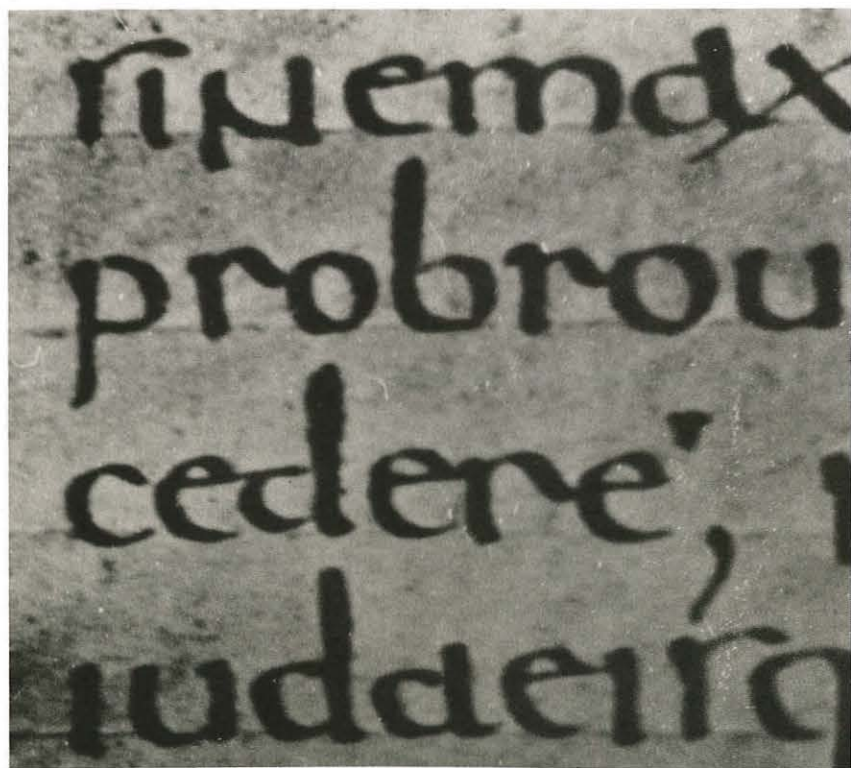 sinemax
probrou
cedere;
iudaeisq